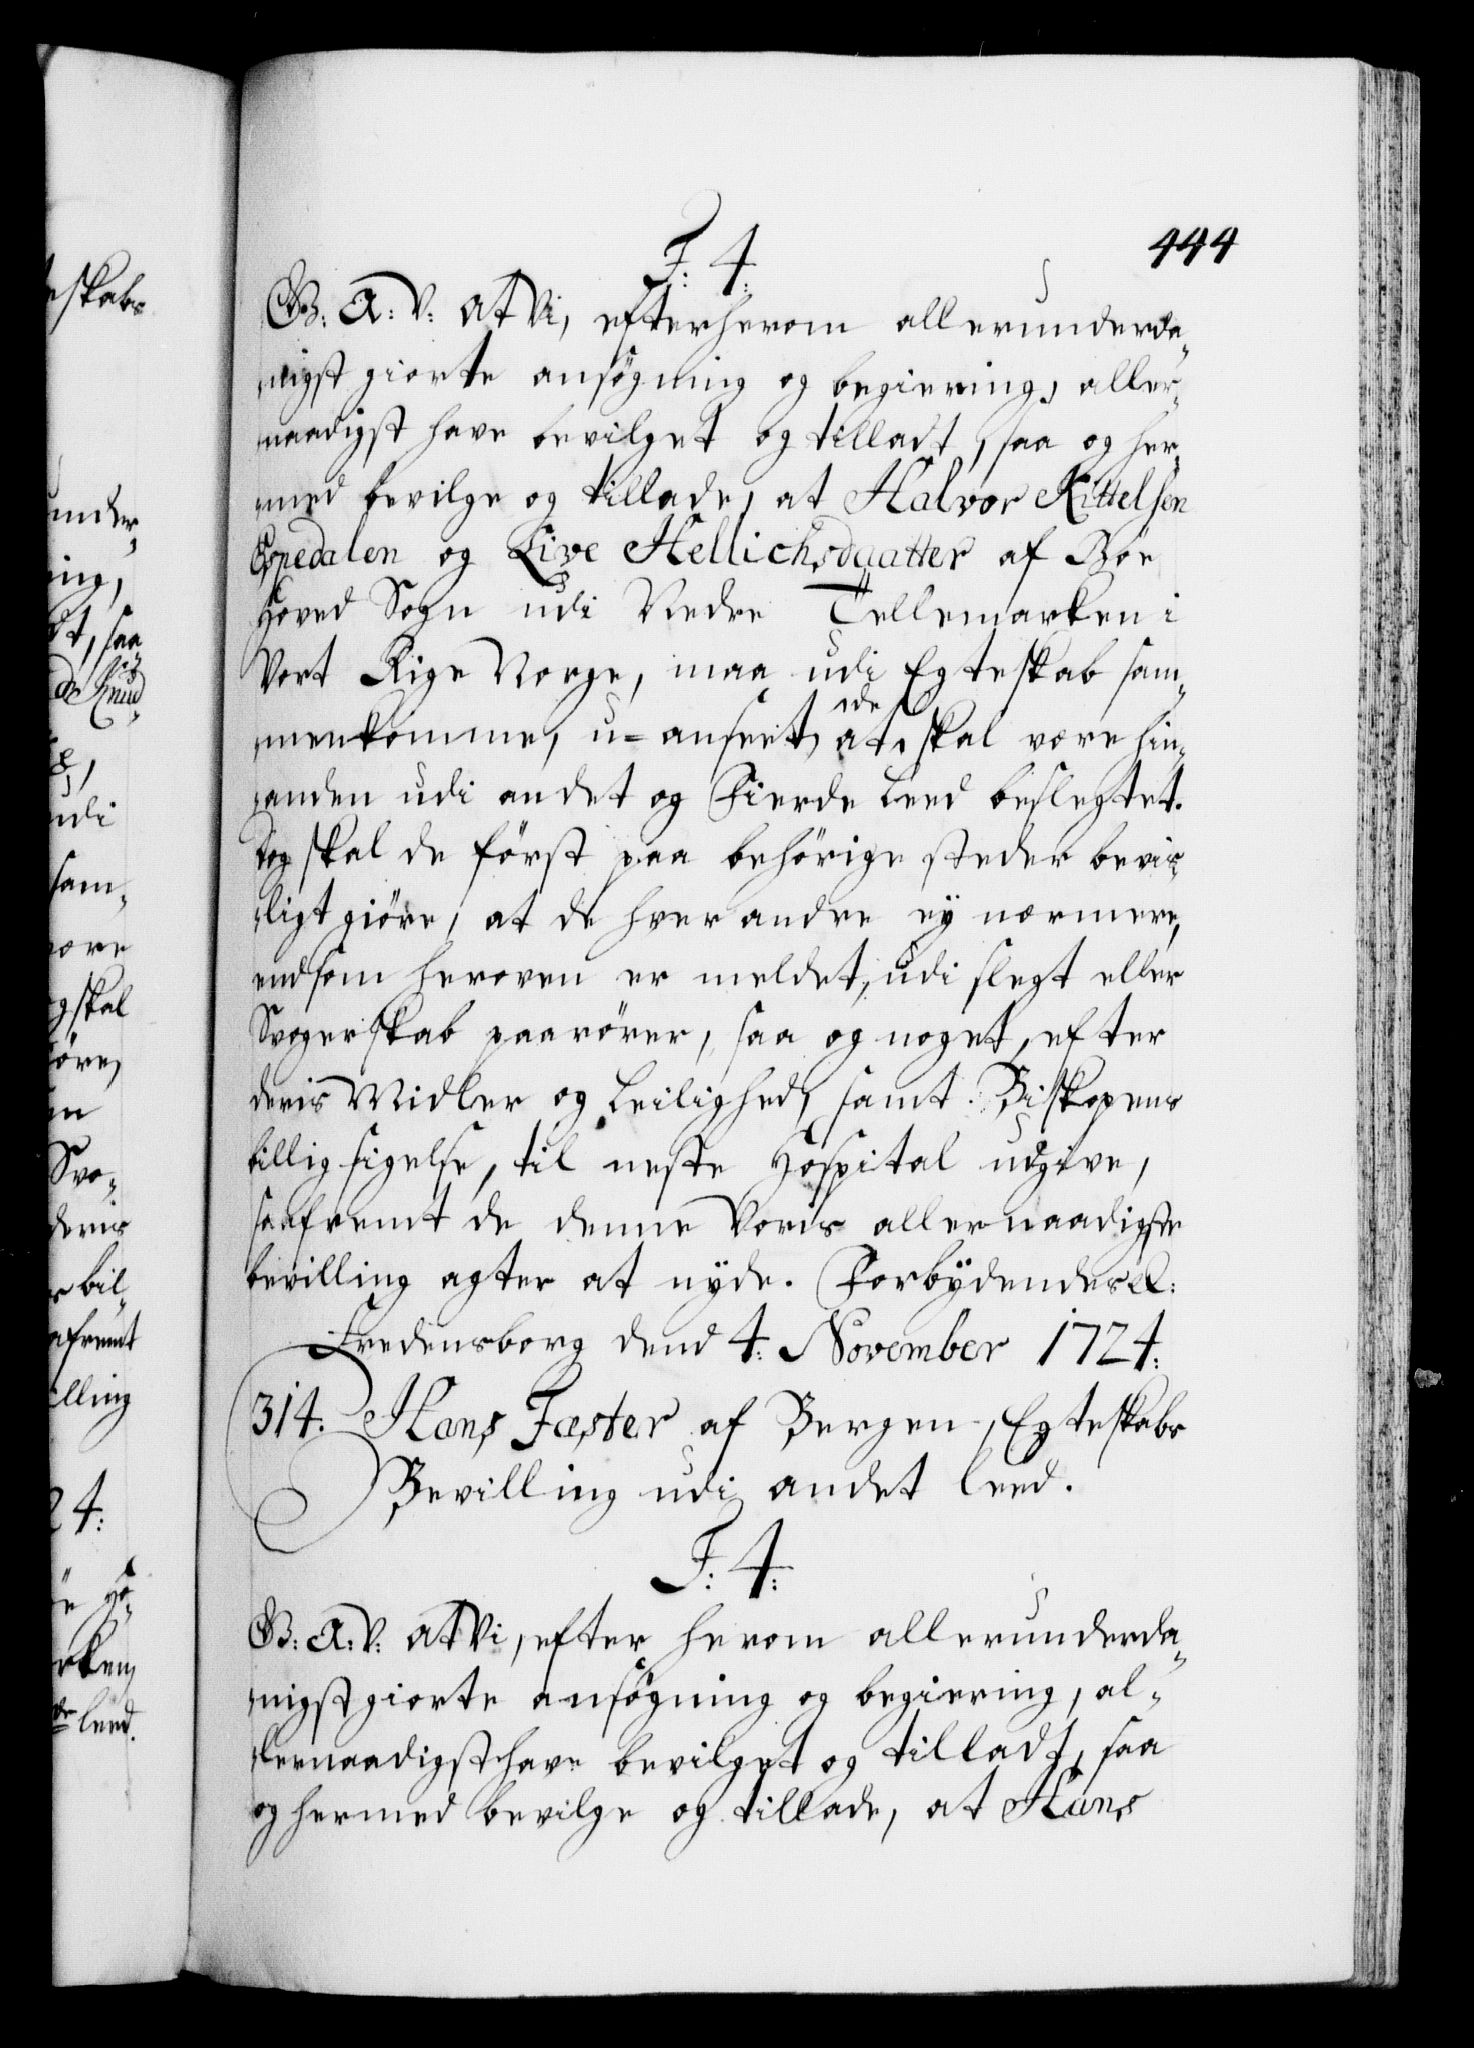 444
F: 4:
G: A: V: at Vi, efter herom allerunderda-
nigst giorte ansøgning og begiering, aller-
naadigst have bevilget og tilladt, saa og her-
med bevilge og tillade, at Halvor Kittelsen
Espedalen og Live Hellichsdaatter af Bøe
Hoved Sogn udi Nedre Tellemarken i
Vort Rige Norge, maa udi Egteskab sam-
menkomme, u-anseet, at de skal være hin-
anden udi andet og Fierde Leed beslegtet.
Dog skal de først paa behörige steder bevis-
ligt giöre, at de hver andre ey nærmere,
end som heroven er meldet, udi slegt eller
Svogerskab paarörer, saa og noget, efter
deris Midler og Leilighed, samt Biskopens
billig sigelse, til neste Hospital udgive,
saafremt de denne Voris allernaadigste
bevilling agter at nyde. Forbydendes el:
Fredensborg dend 4: November 1724:
314. Hans Fæster af Bergen, Egteskabs
Bevilling udi andet leed.
F: 4:
G: A: V: at Vi, efter herom allerunderda-
nigst giorte ansøgning og begiering, al-
lernaadigst have bevilget og tilladt, saa
og hermed bevilge og tillade, at Hans